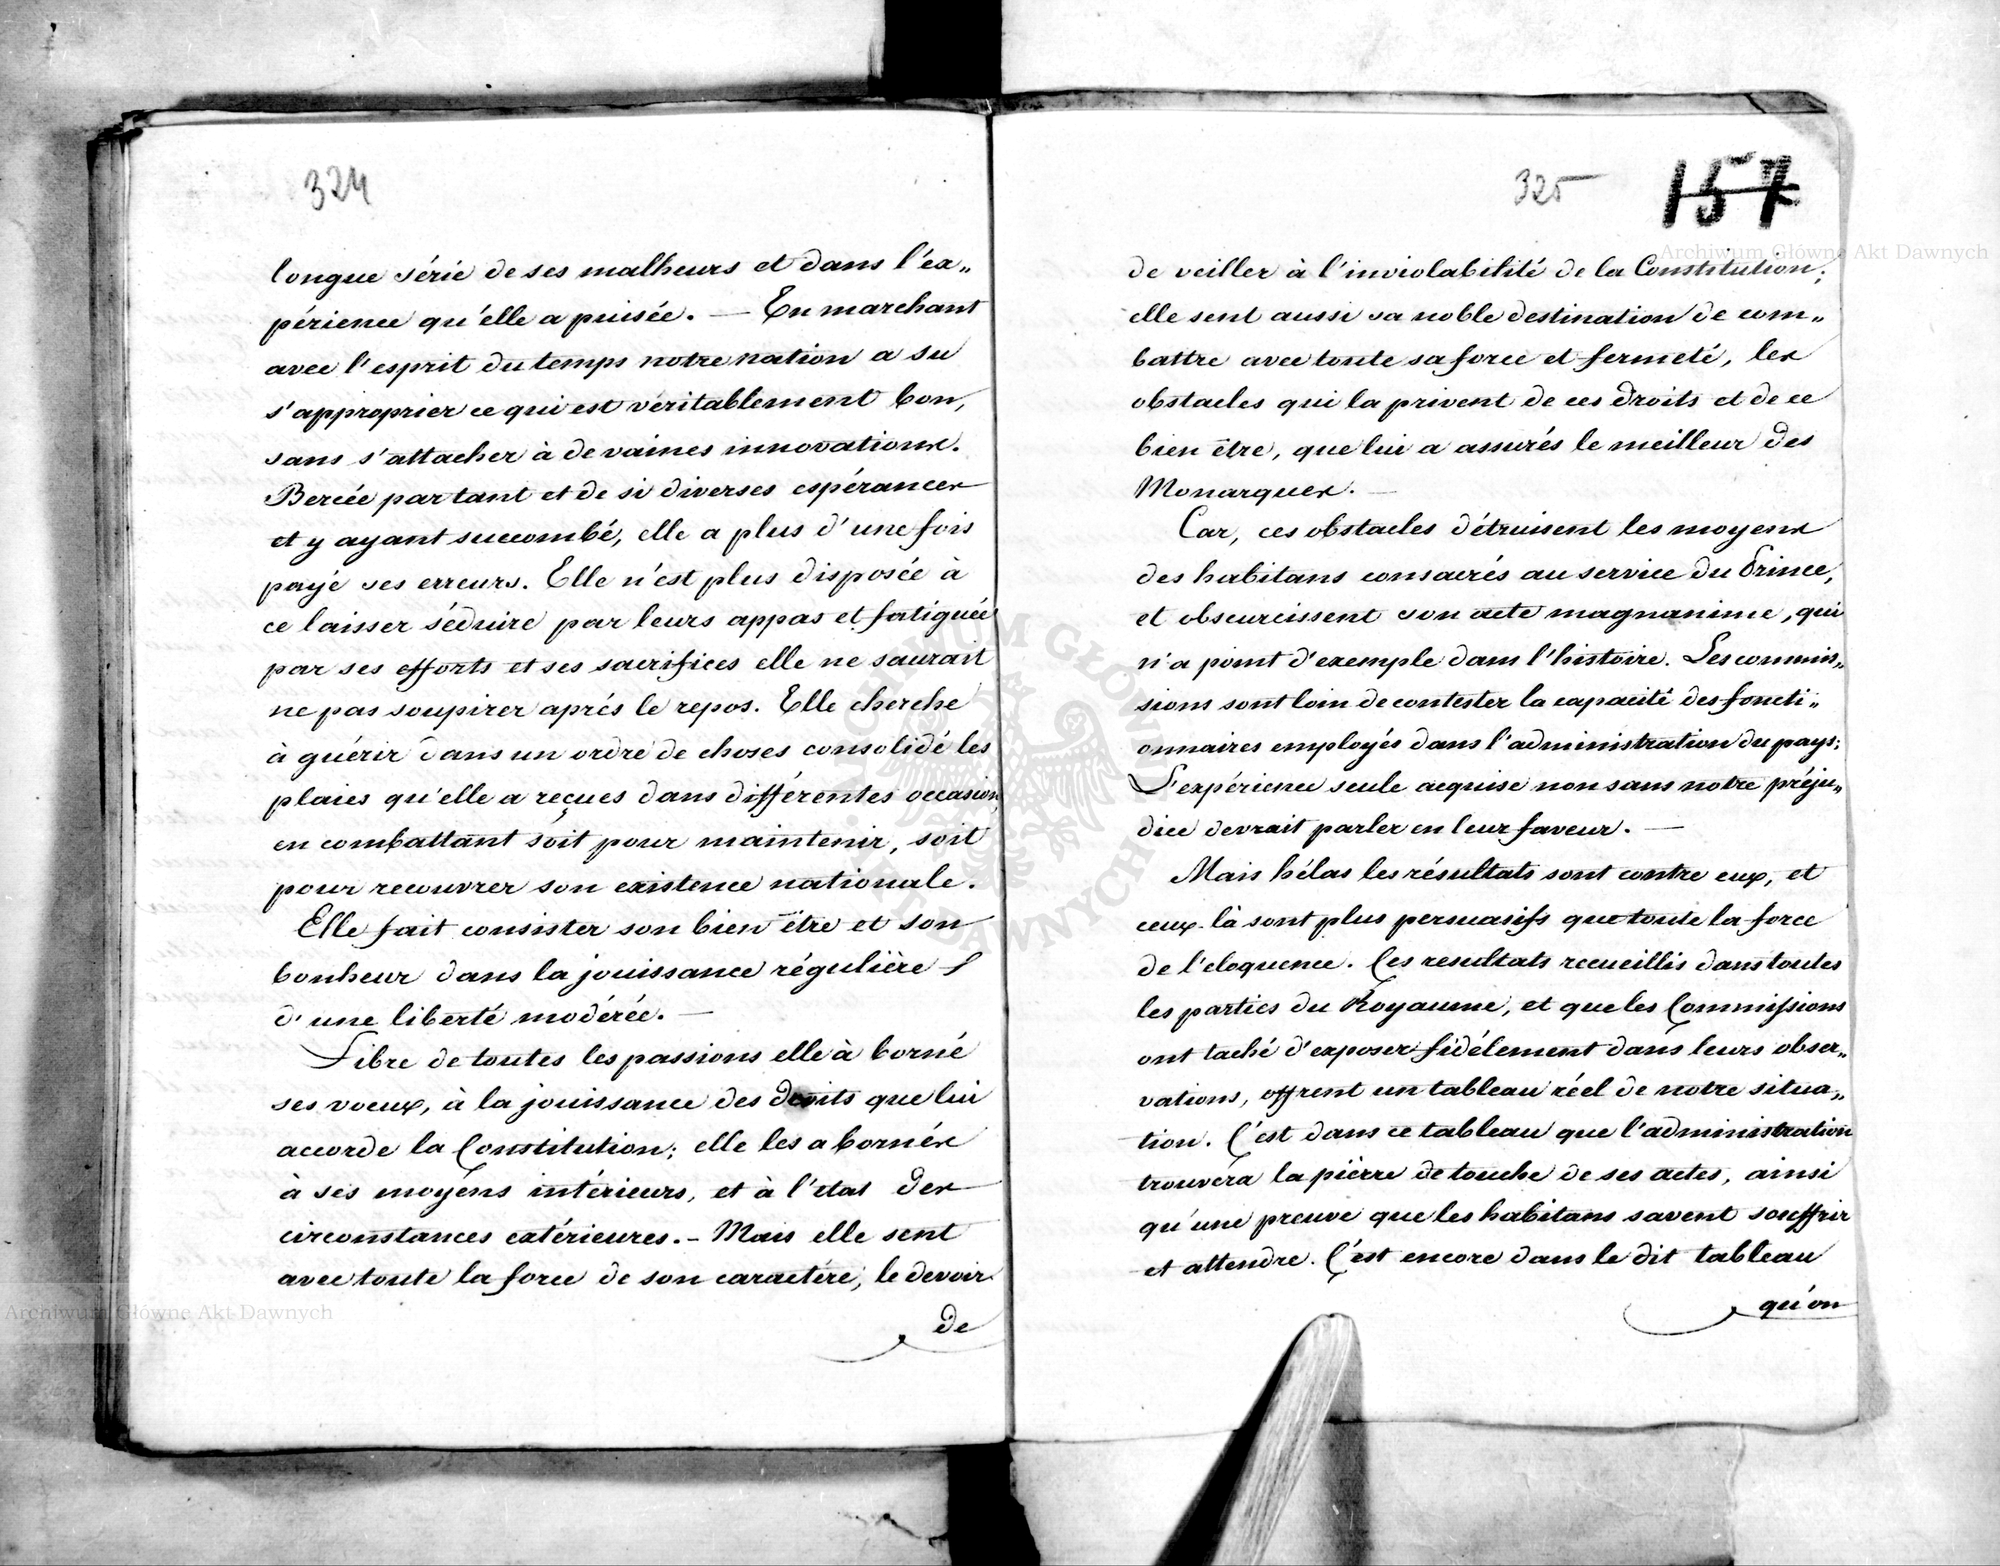 324
longue série de ses malheurs et dans l'ex„
périence qu'elle a puisée. — En marchant
avec l'esprit du temps notre nation a su
s'approprier ce qui est véritablement bon,
sans s'attacher à de vaines innovations.
Bercée par tant et de si diverses espérances
et y ayant succombé, elle a plus d'une fois
payé ses erreurs. Elle n'est plus disposée à
ce laisser séduire par leurs appas et fatiguée
par ses efforts et ses sacrifices elle ne saurait
ne pas soupirer aprés le repos. Elle cherche
à guérir dans un ordre de choses consolidé les
plaies qu'elle a reçues dans différentes occasions,
en combattant soit pour maintenir, soit
pour recouvrer son existence nationale.
Elle fait consister son bien être et son
bonheur dans la jouissance régulière
d'une liberté modérée. —
Libre de toutes les passions elle à borné
ses voeux, à la jouissance des droits que lui
accorde la Constitution; elle les a bornés
à ses moyens intérieurs, et à l'etat des
circonstances extérieures. - Mais elle sent
avec toute la force de son caractére, le devoir
de
325 157
de veiller à l'inviolabilité de la Constitution;
elle sent aussi sa noble destination de com„
battre avec toute sa force et fermeté, les
obstacles qui la privent de ces droits et de ce
bien être, que lui a assurés le meilleur des
Monarques. —
Car, ces obstacles détruisent les moyens
des habitans consacrés au service du Prince,
et obscurcissent son acte magnanime, qui
n'a point d'exemple dans l'histoire. Les commis„
sions sont loin de contester la capacité des foncti„
onnaires employés dans l'administration du pays;
L'expérience seule acquise non sans notre préju„
dice devrait parler en leur faveur. —
Mais hélas les résultats sont contre eux, et
ceux-là sont plus persuasifs que toute la force
de l'eloquence. Ces resultats recueillis dans toutes
les parties du Royaume, et que les Commissions
ont taché d'exposer fidélement dans leurs obser„
vations, offrent un tableau réel de notre situa„
tion. C'est dans ce tableau que l'administration
trouvera la pierre de touche de ses actes, ainsi
qu'une preuve que les habitans savent souffrir
et attendre. C'est encore dans le dit tableau
qu'on
Archiwum Główne Akt Dawnych
Archiwum Główne Akt Dawnych
ARCHIWUM GŁÓWNE AKT DAWNYCH